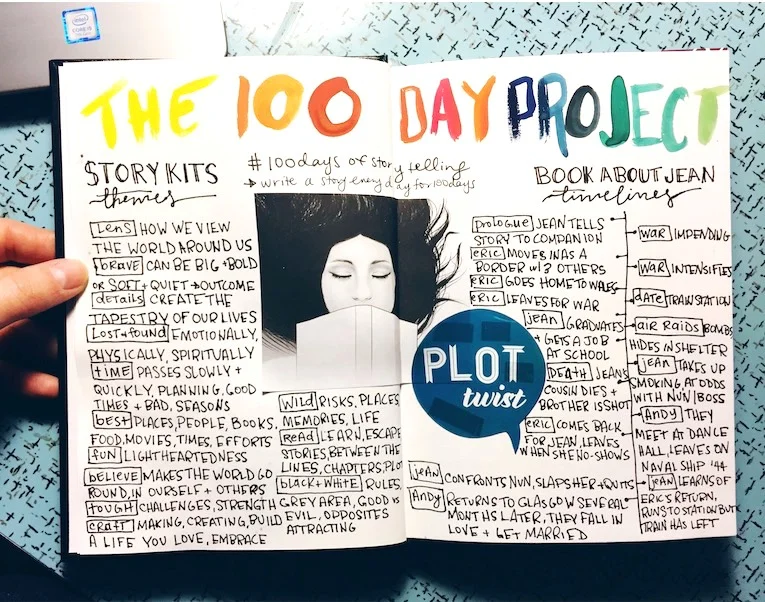 intel
CORE i5
THE 100 DAY PROJECT
STORY KITS
themes
#100days of story telling
→ write a story every day for 100 days
Lens HOW WE VIEW
THE WORLD AROUND US
brave CAN BE BIG + BOLD
OR SOFT + QUIET → OUTCOME
details CREATE THE
TAPESTRY OF OUR LIVES
LOST + found EMOTIONALLY,
PHYSICALLY, SPIRITUALLY
time PASSES SLOWLY +
QUICKLY, PLANNING, GOOD
TIMES + BAD, SEASONS
best PLACES, PEOPLE, BOOKS,
FOOD, MOVIES, TIMES, EFFORTS
fun LIGHTHEARTEDNESS
believe MAKES THE WORLD GO
ROUND, IN OURSELF + OTHERS
tough CHALLENGES, STRENGTH
craft MAKING, CREATING, BUILD
A LIFE YOU LOVE, EMBRACE
Wild RISKS, PLACES,
MEMORIES, LIFE
Read LEARN, ESCAPE
STORIES BETWEEN THE
LINES, CHAPTERS, PLOT
black + white RULES,
GREY AREA, GOOD vs
EVIL, OPPOSITES
ATTRACTING
PLOT
twist
BOOK ABOUT JEAN
timelines
prologue JEAN TELLS
STORY TO COMPANION
eric MOVES IN AS A
BORDER w/ 2 OTHERS
eric GOES HOME TO WALES
eric LEAVES FOR WAR
jean GRADUATES
+ GETS A JOB
AT SCHOOL
DEATH JEANS
COUSIN DIES +
BROTHER IS SHOT
eric COMES BACK
FOR JEAN, LEAVES
WHEN SHE NO-SHOWS
jean CONFRONTS NUN, SLAPS HER + QUITS
Andy RETURNS TO GLASGOW SEVERAL
MONTHS LATER, THEY FALL IN
LOVE + GET MARRIED
war IMPENDING
war INTENSIFIES
date TRAIN STATION
air raids BOMBS
HIDES IN SHELTER
jean TAKES UP
SMOKING AT ODDS
WITH NUN/BOSS
Andy THEY
MEET AT DANCE
HALL, LEAVES ON
NAVAL SHIP '44
jean LEARNS OF
ERIC'S RETURN,
RUNS TO STATION BUT
TRAIN HAS LEFT